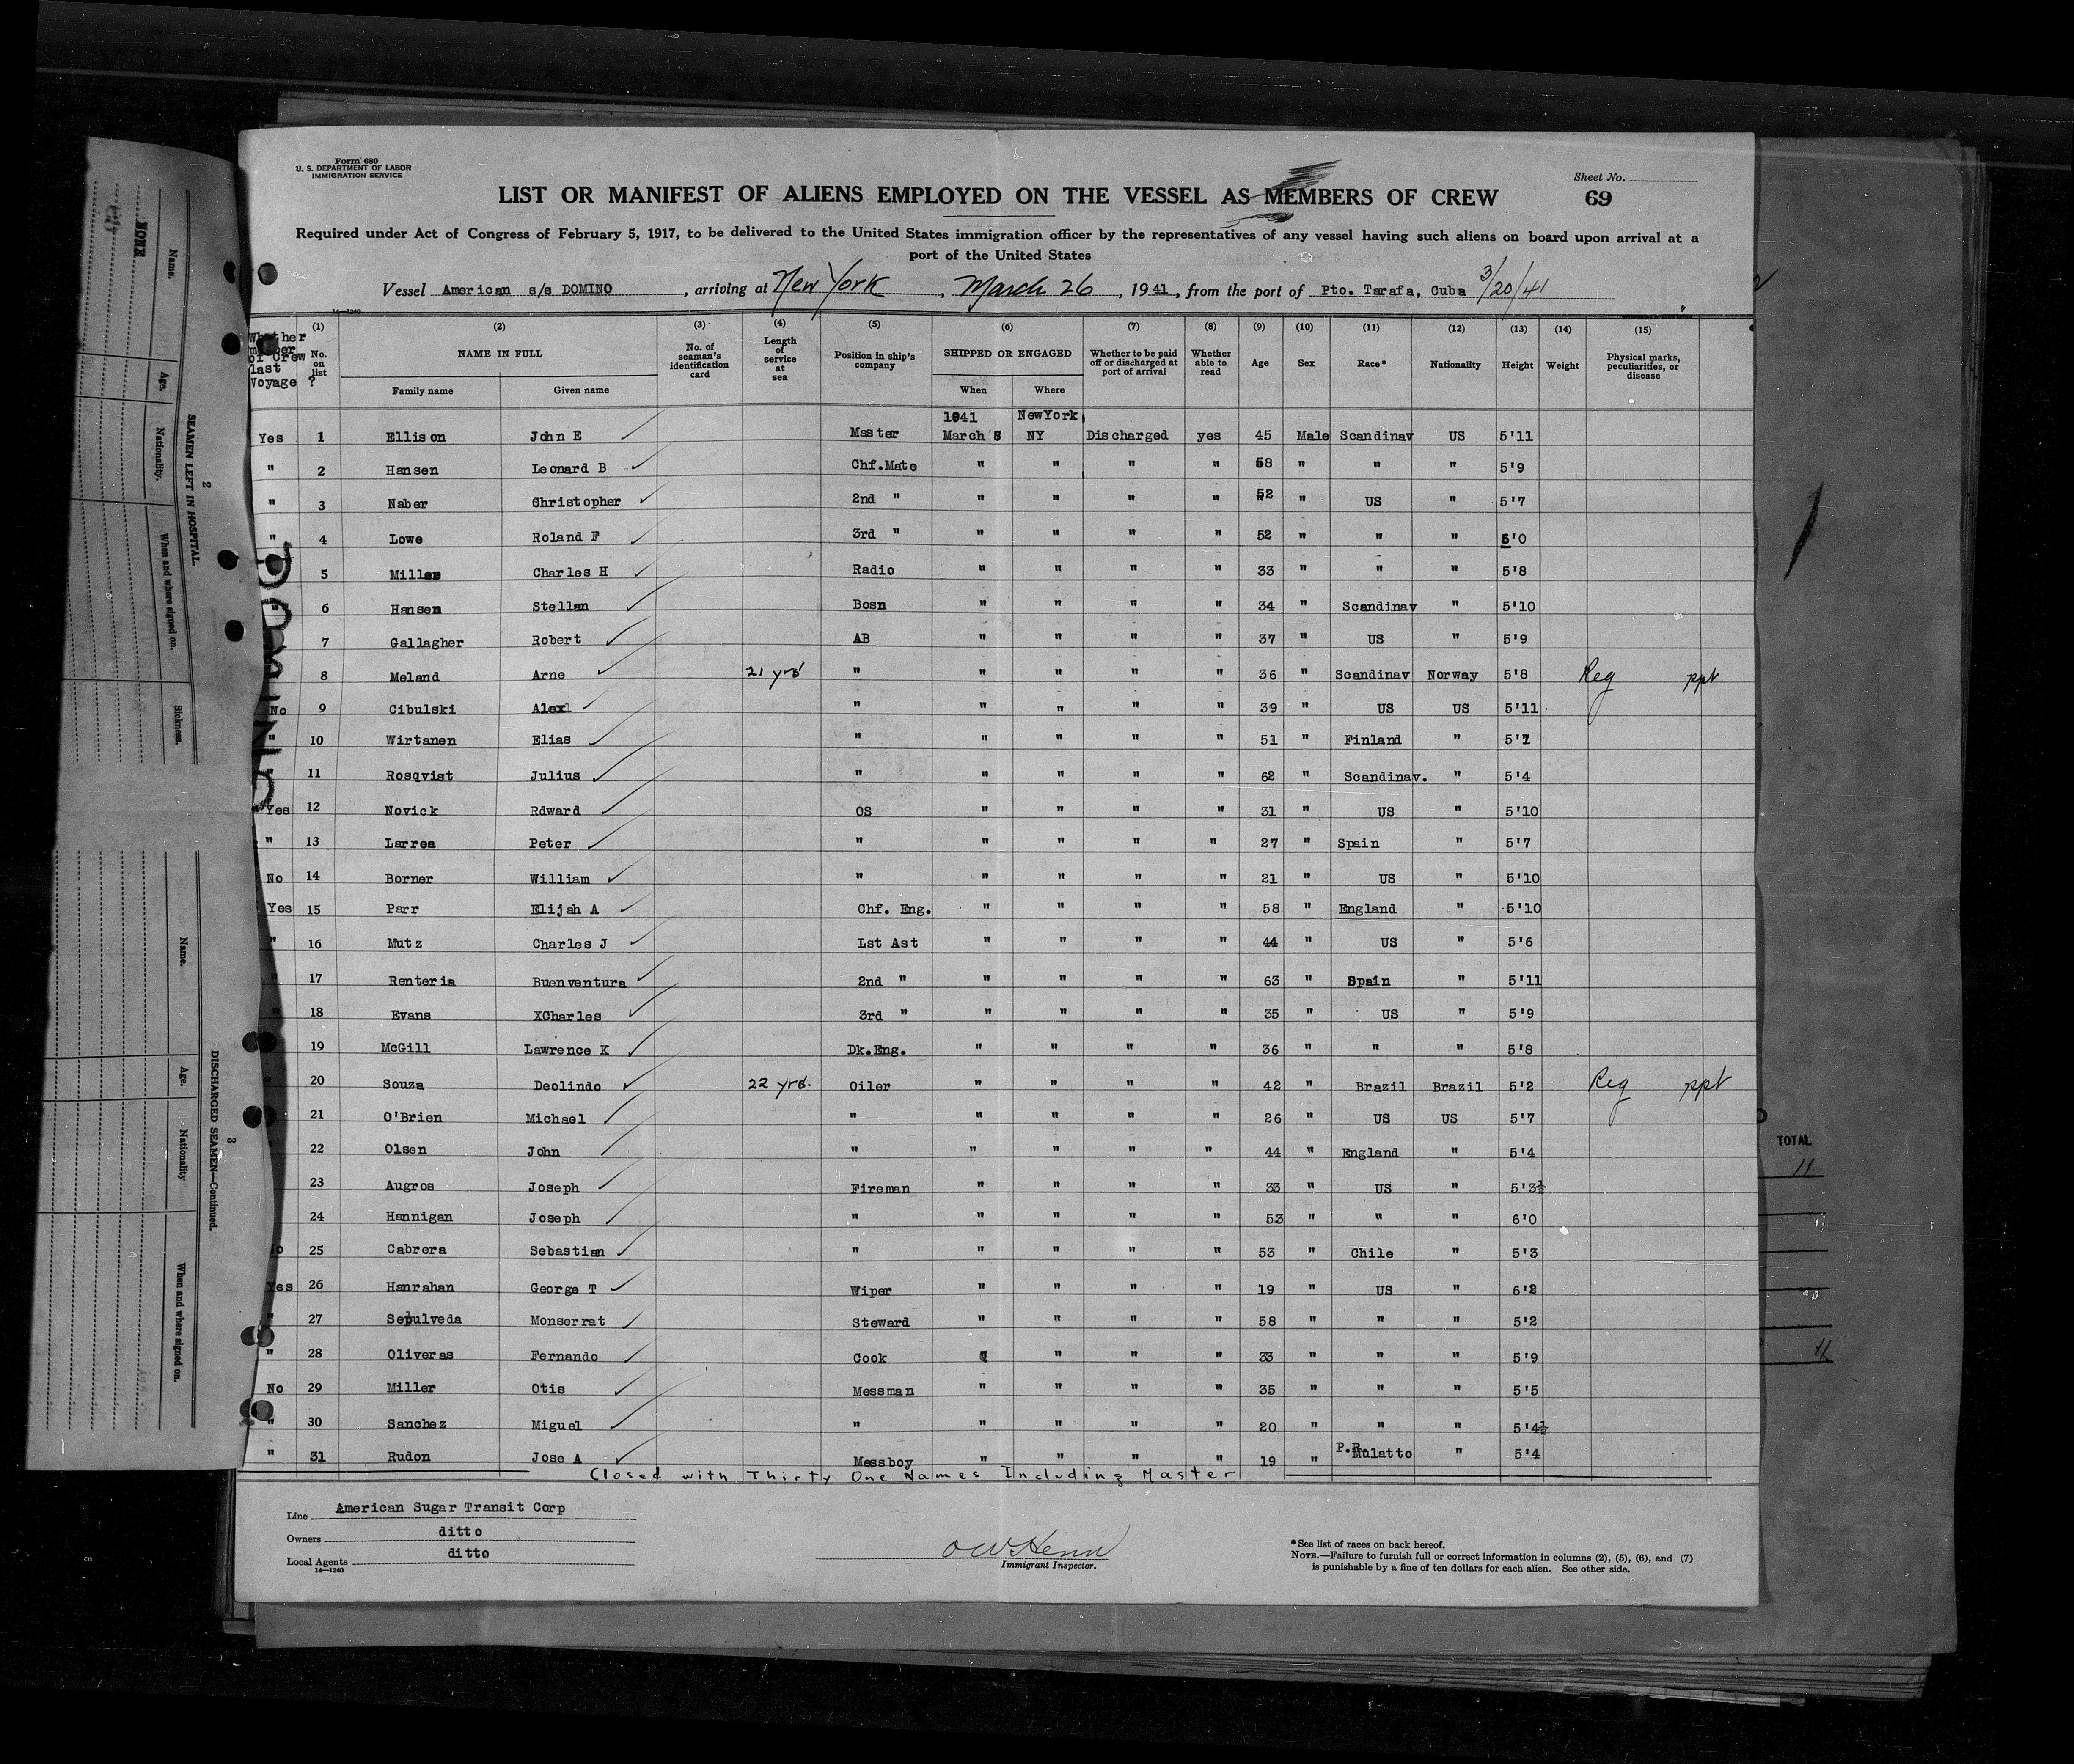 Form 680
U. S. DEPARTMENT OF LABOR
IMMIGRATION SERVICE
Sheet No.
69
LIST OR MANIFEST OF ALIENS EMPLOYED ON THE VESSEL AS MEMBERS OF CREW
Required under Act of Congress of February 5, 1917, to be delivered to the United States immigration officer by the representatives of any vessel having such aliens on board upon arrival at a
port of the United States
Vessel American s/s DOMINO, arriving at New York, March 26, 1941, from the port of Pto. Tarafa, Cuba 3/20/41
14—1240
Whether member of Crew last Voyage ? (1) No. on list (2) NAME IN FULL Family name Given name (3) No. of seaman's identification card (4) Length of service at sea (5) Position in ship's company (6) SHIPPED OR ENGAGED When Where (7) Whether to be paid off or discharged at port of arrival (8) Whether able to read (9) Age (10) Sex (11) Race* (12) Nationality (13) Height (14) Weight (15) Physical marks, peculiarities, or disease
1941 NewYork
Yes 1 Ellison John E Master March 8 NY Discharged yes 45 Male Scandinav US 5'11
" 2 Hansen Leonard B Chf.Mate " " " " 58 " " " 5'9
" 3 Naber Christopher 2nd " " " " " 52 " US " 5'7
" 4 Lowe Roland F 3rd " " " " " 52 " " " 6'0
5 Miller Charles H Radio " " " " 33 " " " 5'8
" 6 Hansen Stellan Bosn " " " " 34 " Scandinav " 5'10
7 Gallagher Robert AB " " " " 37 " US " 5'9
8 Meland Arne 21 yrs " " " " " 36 " Scandinav Norway 5'8 Reg ppt
No 9 Cibulski Alex " " " " " 39 " US US 5'11
" 10 Wirtanen Elias " " " " " 51 " Finland " 5'7
" 11 Rosqvist Julius " " " " " 62 " Scandinav. " 5'4
Yes 12 Novick Rdward OS " " " " 31 " US " 5'10
" 13 Larrea Peter " " " " " 27 " Spain " 5'7
No 14 Borner William " " " " " 21 " US " 5'10
Yes 15 Parr Elijah A Chf. Eng. " " " " 58 " England " 5'10
" 16 Mutz Charles J Lst Ast " " " " 44 " US " 5'6
" 17 Renteria Buenventura 2nd " " " " " 63 " Spain " 5'11
" 18 Evans XCharles 3rd " " " " " 35 " US " 5'9
19 McGill Lawrence K Dk.Eng. " " " " 36 " " " 5'8
" 20 Souza Deolindo 22 yrs. Oiler " " " " 42 " Brazil Brazil 5'2 Reg ppt
21 O'Brien Michael " " " " " 26 " US US 5'7
22 Olsen John " " " " " 44 " England " 5'4
23 Augros Joseph Fireman " " " " 33 " US " 5'3½
24 Hannigan Joseph " " " " " 53 " " " 6'0
25 Cabrera Sebastian " " " " " 53 " Chile " 5'3
Yes 26 Hanrahan George T Wiper " " " " 19 " US " 6'2
" 27 Sepulveda Monserrat Steward " " " " 58 " " " 5'2
" 28 Oliveras Fernando Cook " " " 33 " " " 5'9
No 29 Miller Otis Messman " " " " 35 " " " 5'5
" 30 Sanchez Miguel " " " " " 20 " " " 5'4½
" 31 Rudon Jose A Messboy " " " " 19 " P.R. Mulatto " 5'4
Closed with Thirty One Names Including Master
Line American Sugar Transit Corp
Owners ditto
Local Agents ditto
14—1240
Immigrant Inspector.
*See list of races on back hereof.
NOTE.—Failure to furnish full or correct information in columns (2), (5), (6), and (7)
is punishable by a fine of ten dollars for each alien. See other side.
DOMINO
2
SEAMEN LEFT IN HOSPITAL.
Name. Age. Nationality. When and where signed on. Sickness.
NONE
3
DISCHARGED SEAMEN—Continued.
Name. Age. Nationality When and where signed on.
TOTAL
11